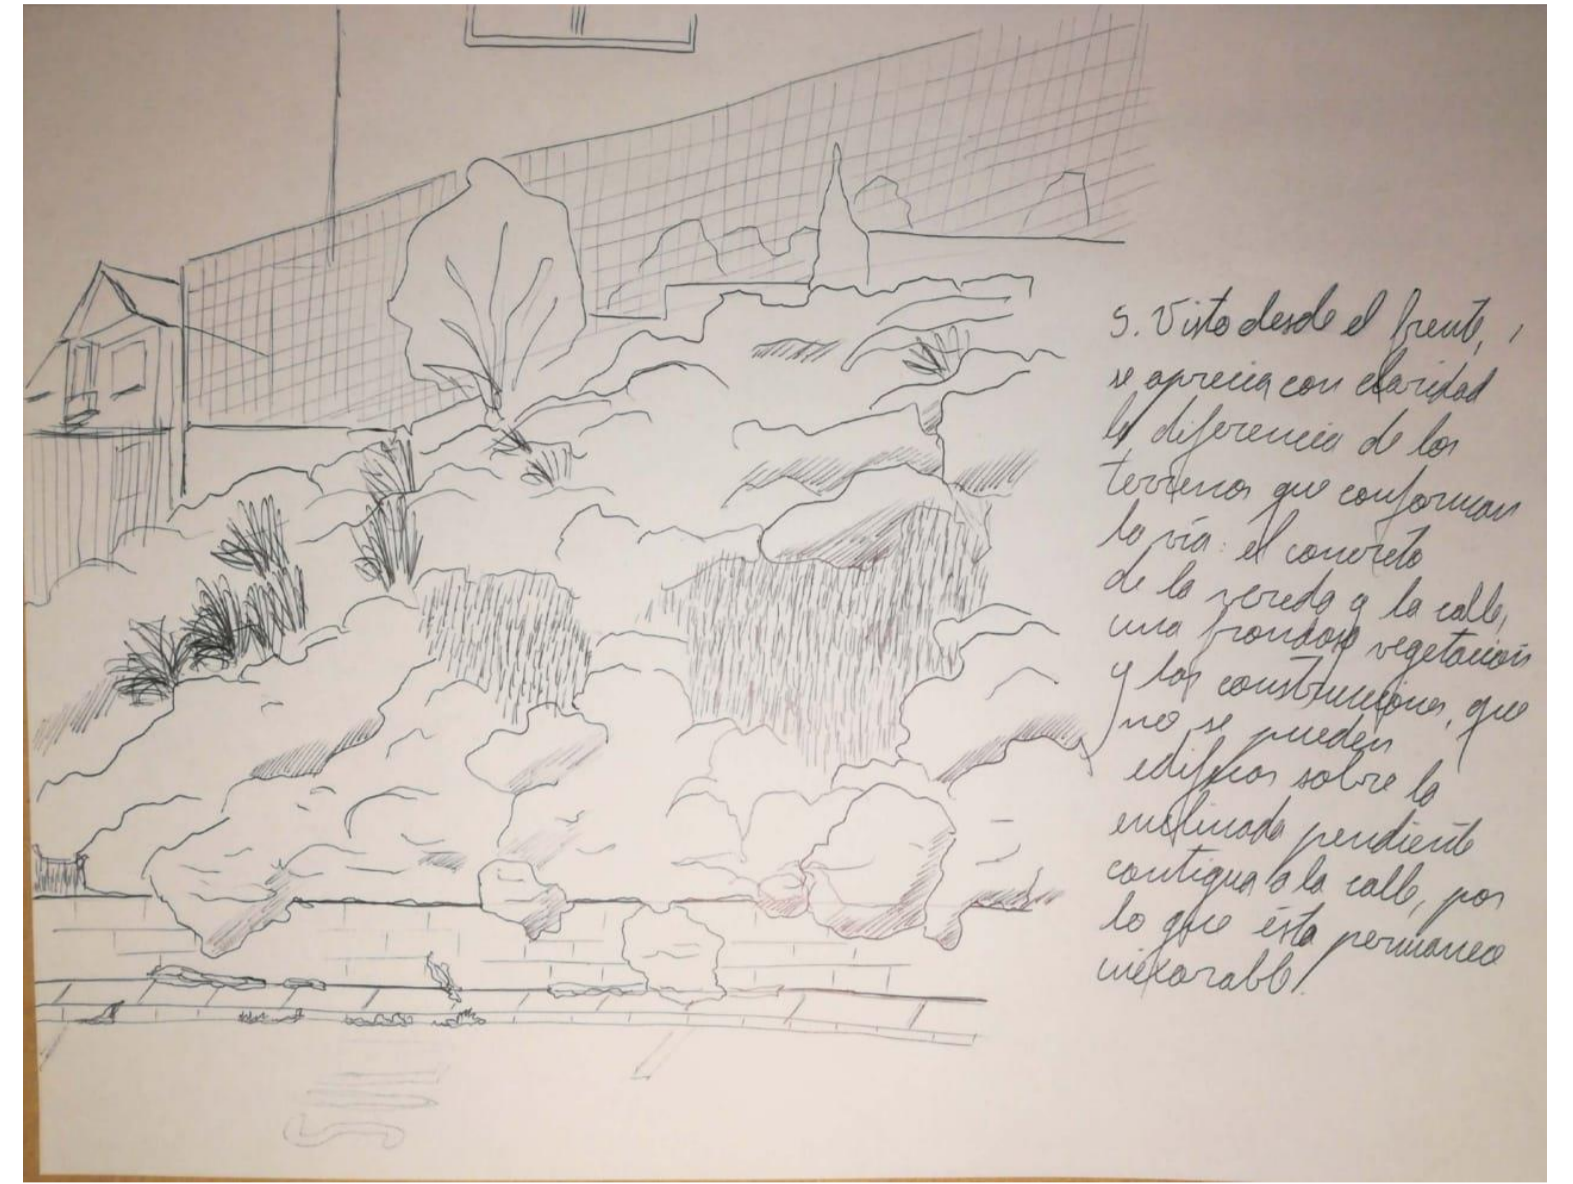 5. Visto desde el frente,
se aprecia con claridad
la diferencia de los
terrenos que conforman
la vía: el concreto
de la vereda y la calle,
una frondosa vegetación
y las construcciones, que
no se pueden
edificar sobre la
inclinada pendiente
contigua a la calle, por
lo que ésta permanece
inexorable.